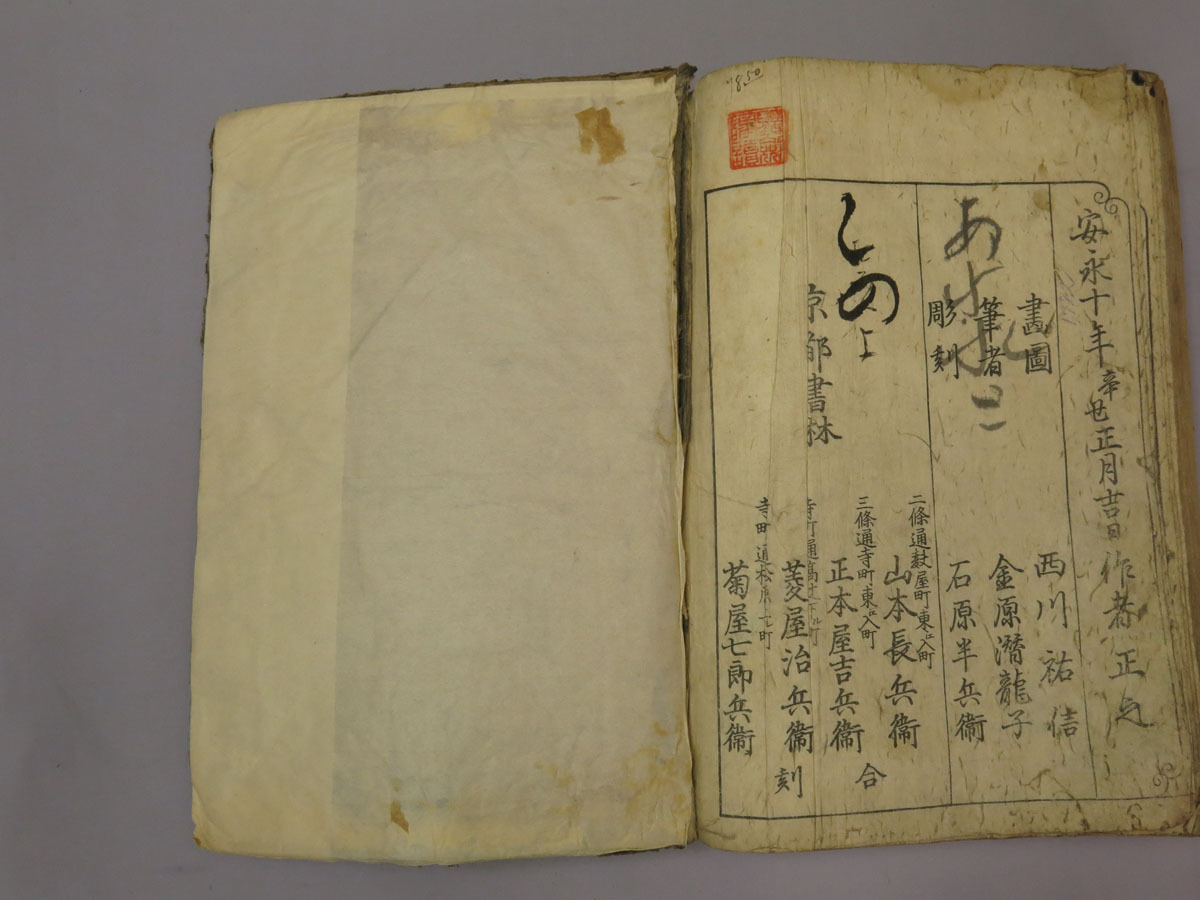 安永十年辛丑正月吉日
作者正
畫圖 西川祐信
筆者 金原潛龍子
彫刻 石原半兵衞
京都書林
二條通麩屋町東江入町
山本長兵衞
三條通寺町東江入町
正本屋吉兵衞
合
寺町通高辻下ル町
菱屋治兵衞
刻
寺町通松原下ル町
菊屋七郎兵衞
しのよ
850